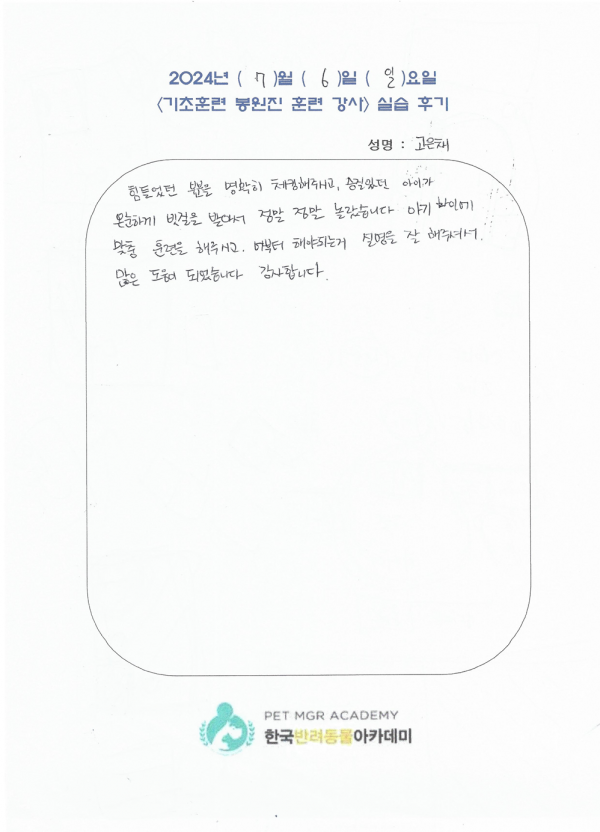 2024년 ( 7 )월 ( 6 )일 ( 일 )요일
<기초훈련 봉원진 훈련 강사> 실습 후기
성명 : 고은채
힘들었던 부분을 명확히 체킹해주시고, 승질있던 아이가
온순하게 빗겸을 받아서 정말 정말 놀랐습니다 아기
맞춤 훈련을 해주시고. 해야되는거 설명을 잘 해주셔서.
많은 도움이 되었습니다 감사합니다.
PET MGR ACADEMY
한국반려동물아카데미